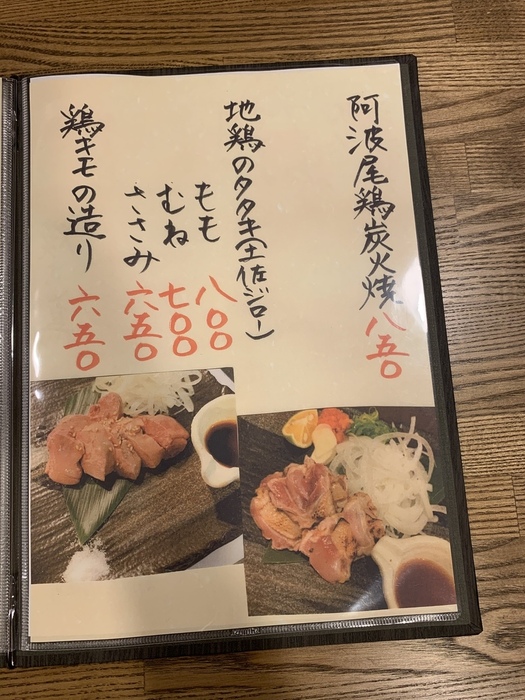 阿波尾鶏炭火焼 八五〇
地鶏のタタキ(土佐ジロー)
もも 八〇〇
むね 七〇〇
ささみ 六五〇
鶏キモの造り 六五〇